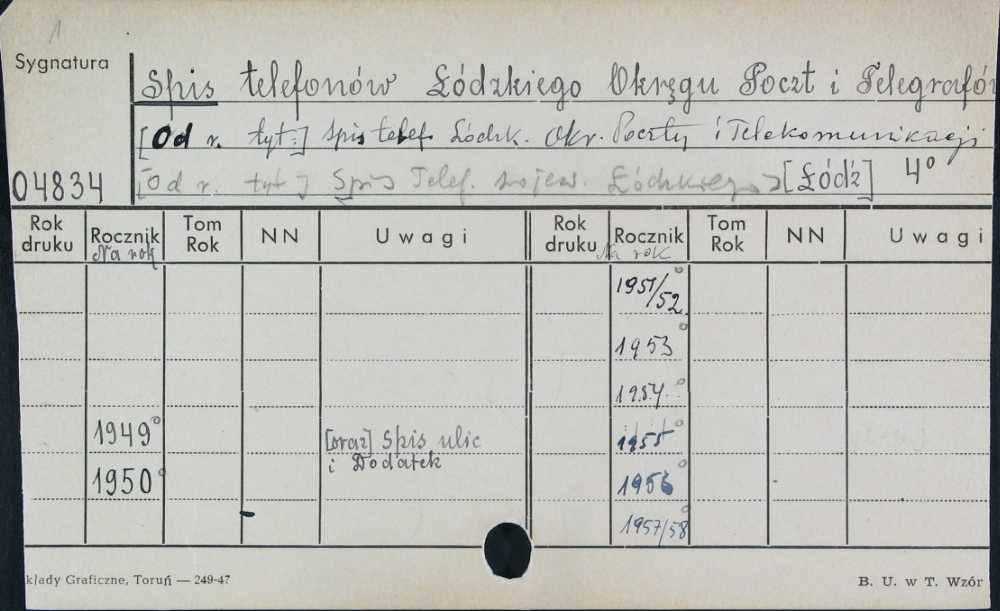 1
Sygnatura
Spis telefonów Łódzkiego Okręgu Poczt i Telegrafów
[Od r. tyt:] Spis telef. Łódzk. Okr. Poczty i Telekomunikacji
04834
[Od r. tyt] Spis Telef. wojew. Łódzkiego [Łódź] 4°
Rok druku Rocznik Tom Rok NN Uwagi Rok druku Rocznik Tom Rok NN Uwagi
Na rok Na rok
1951/52°
1953°
1954°
1949° [oraz] Spis ulic 1955°
i Dodatek
1950° 1956°
1957/58°
kłady Graficzne, Toruń — 249-47 B. U. w T. Wzór